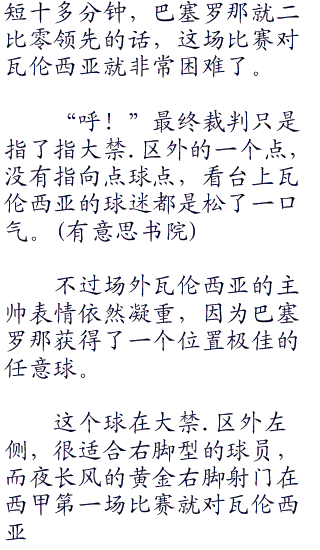 短十多分钟，巴塞罗那就二
比零领先的话，这场比赛对
瓦伦西亚就非常困难了。
“呼！”最终裁判只是
指了指大禁.区外的一个点，
没有指向点球点，看台上瓦
伦西亚的球迷都是松了一口
气。(有意思书院)
不过场外瓦伦西亚的主
帅表情依然凝重，因为巴塞
罗那获得了一个位置极佳的
任意球。
这个球在大禁.区外左
侧，很适合右脚型的球员，
而夜长风的黄金右脚射门在
西甲第一场比赛就对瓦伦西
亚